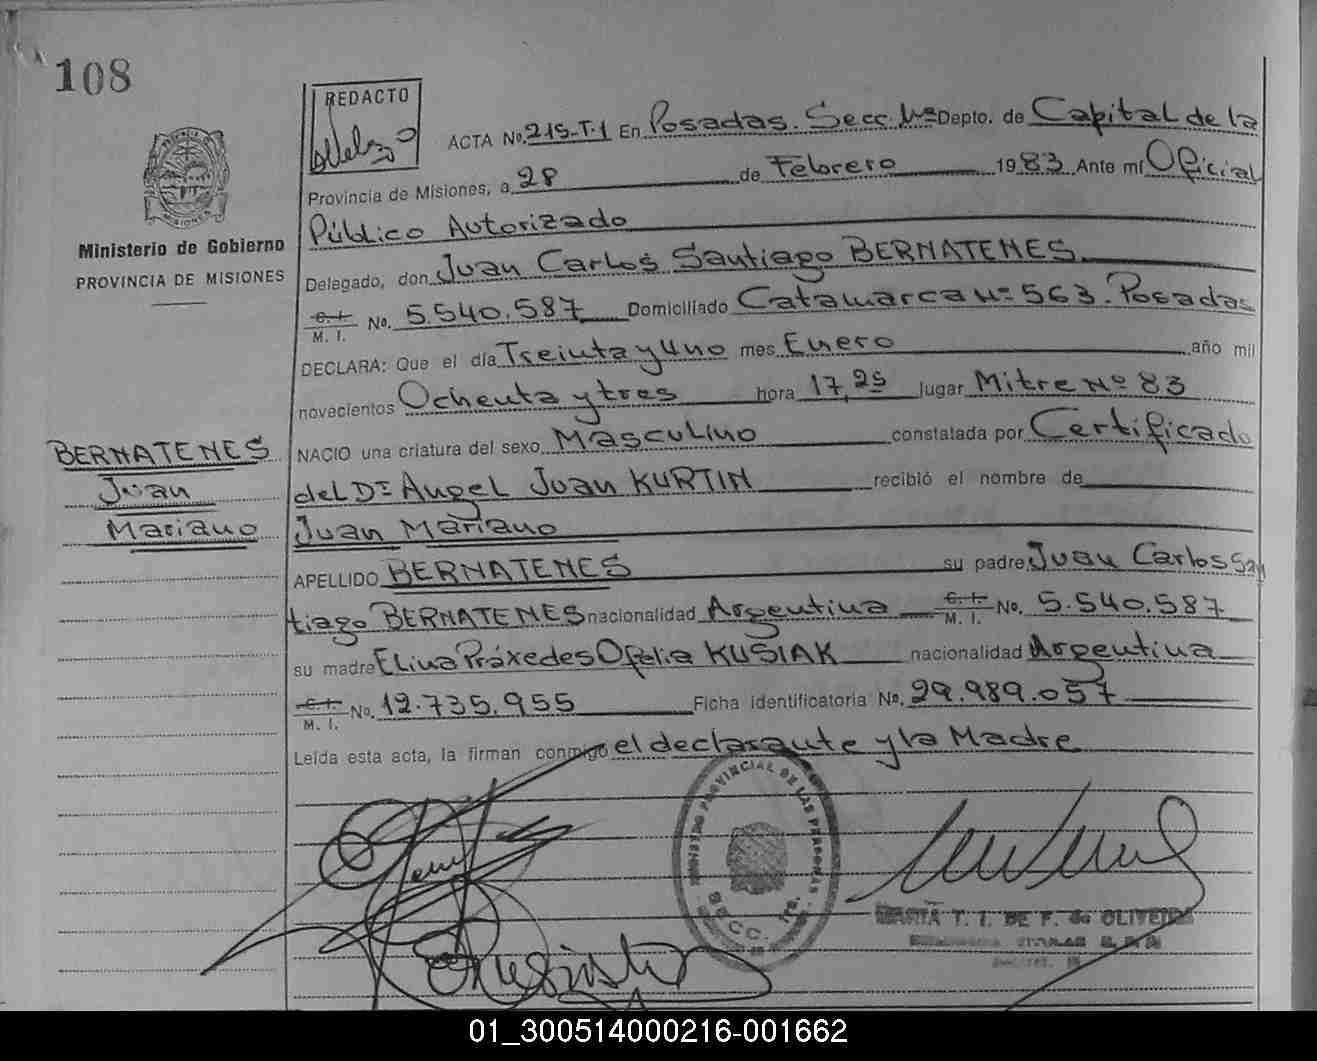 108
REDACTO
ACTA No. 215-T.1 En Posadas. Secc. 1ra Depto. de Capital de la
Provincia de Misiones, a 28 de Febrero 1983 Ante mí Oficial
Público Autorizado
Ministerio de Gobierno
PROVINCIA DE MISIONES
Delegado, don Juan Carlos Santiago BERNATENES
C. I.
M. I. No. 5.540.587 Domiciliado Catamarca Nº 563. Posadas
DECLARA: Que el día Treinta y Uno mes Enero año mil
novecientos Ochenta y tres hora 17,25 lugar Mitre Nº 83
NACIO una criatura del sexo Masculino constatada por Certificado
del Dr Angel Juan KURTIN recibió el nombre de
Juan Mariano
BERNATENES
Juan
Mariano
APELLIDO BERNATENES su padre Juan Carlos San
tiago BERNATENES nacionalidad Argentina C. I.
M. I. No. 5.540.587
su madre Elina Práxedes Ofelia KUSIAK nacionalidad Argentina
C. I.
M. I. No. 12.735.955 Ficha identificatoria No. 29.989.057
Leída esta acta, la firman conmigo el declarante y la Madre
REGISTRO PROVINCIAL DE LAS PERSONAS
SECC. 1ra.
MARTA T. I. DE F. de OLIVEIRA
01_300514000216-001662